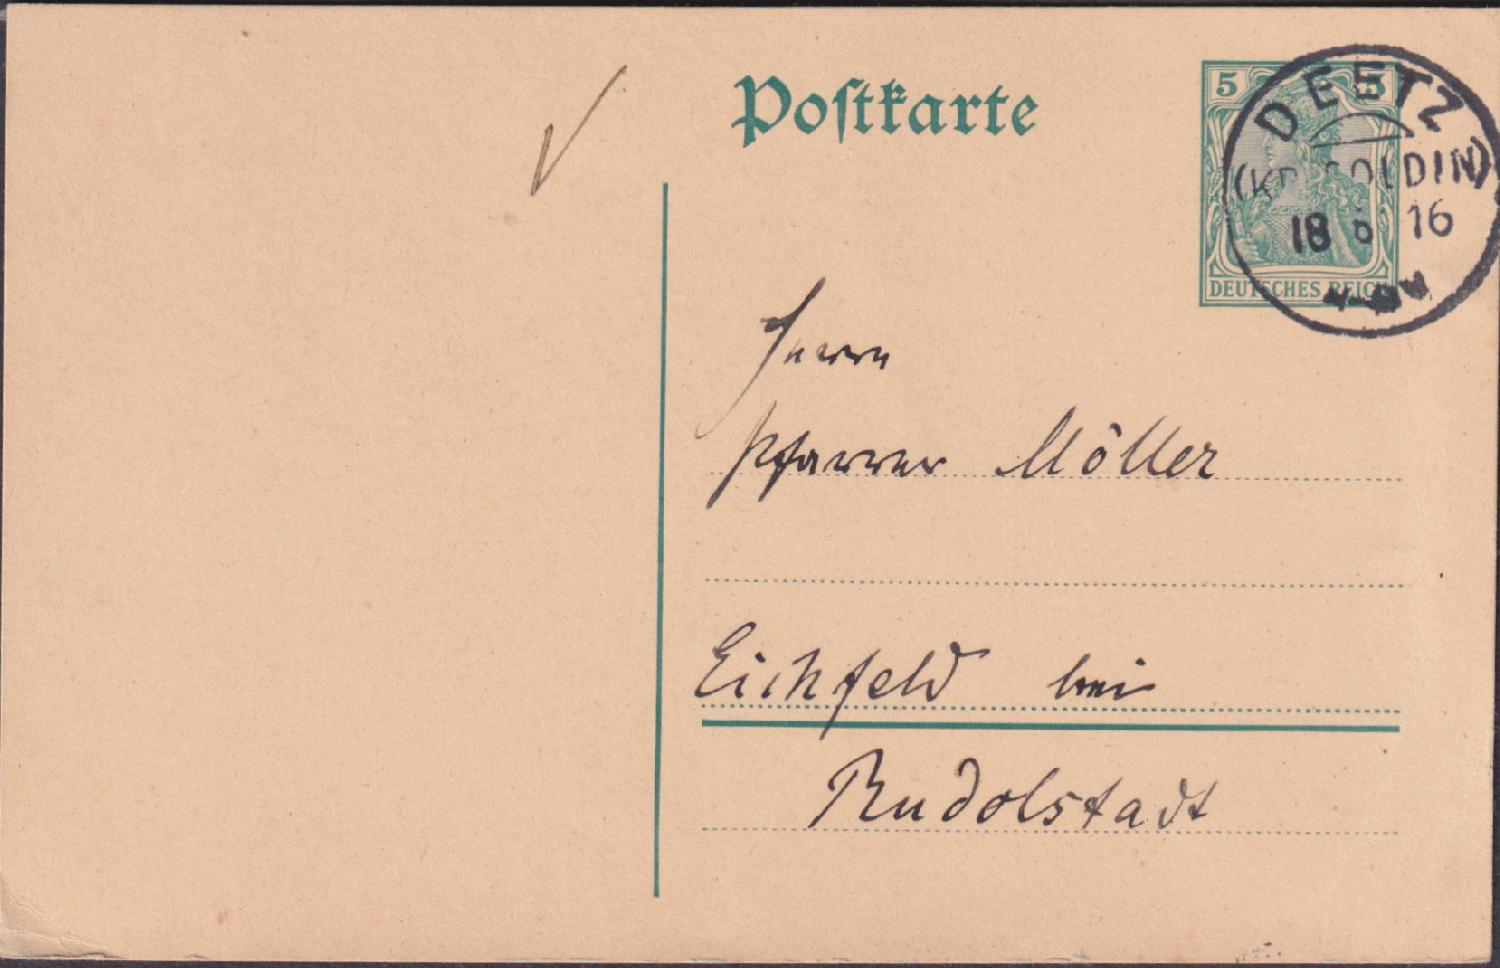 Postkarte
5 5
DEUTSCHES REICH
DEETZ
(KR. SOLDIN)
18 6 16
Herrn
Pfarrer Möller
Eichfeld bei
Rudolstadt